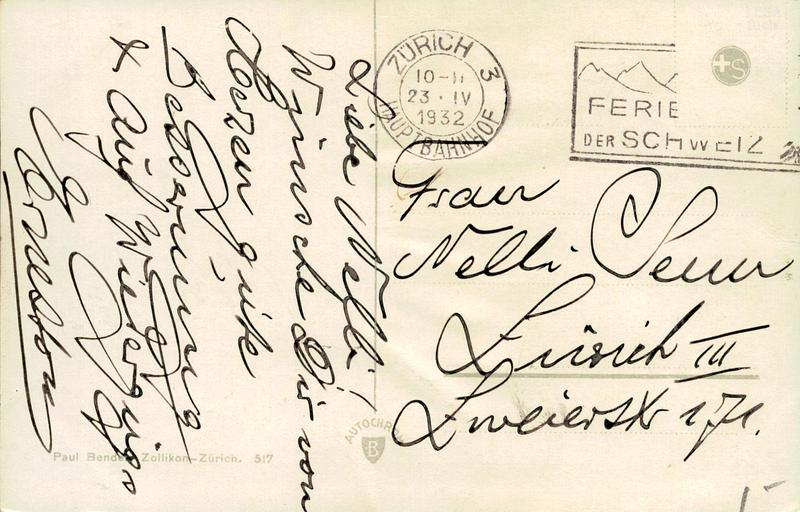 Liebe Nelli!
Wünsche Dir von
Herzen gute
Besserung
+ Auf Wiederseh's
ZÜRICH 3
10-11
23·IV
1932
HAUPTBAHNHOF
FERIE
DER SCHWEIZ
+S
Frau
Nelli
Zürich III
Zweierstr 171.
AUTOCHR
B
Paul Bender, Zollikon-Zürich. 517